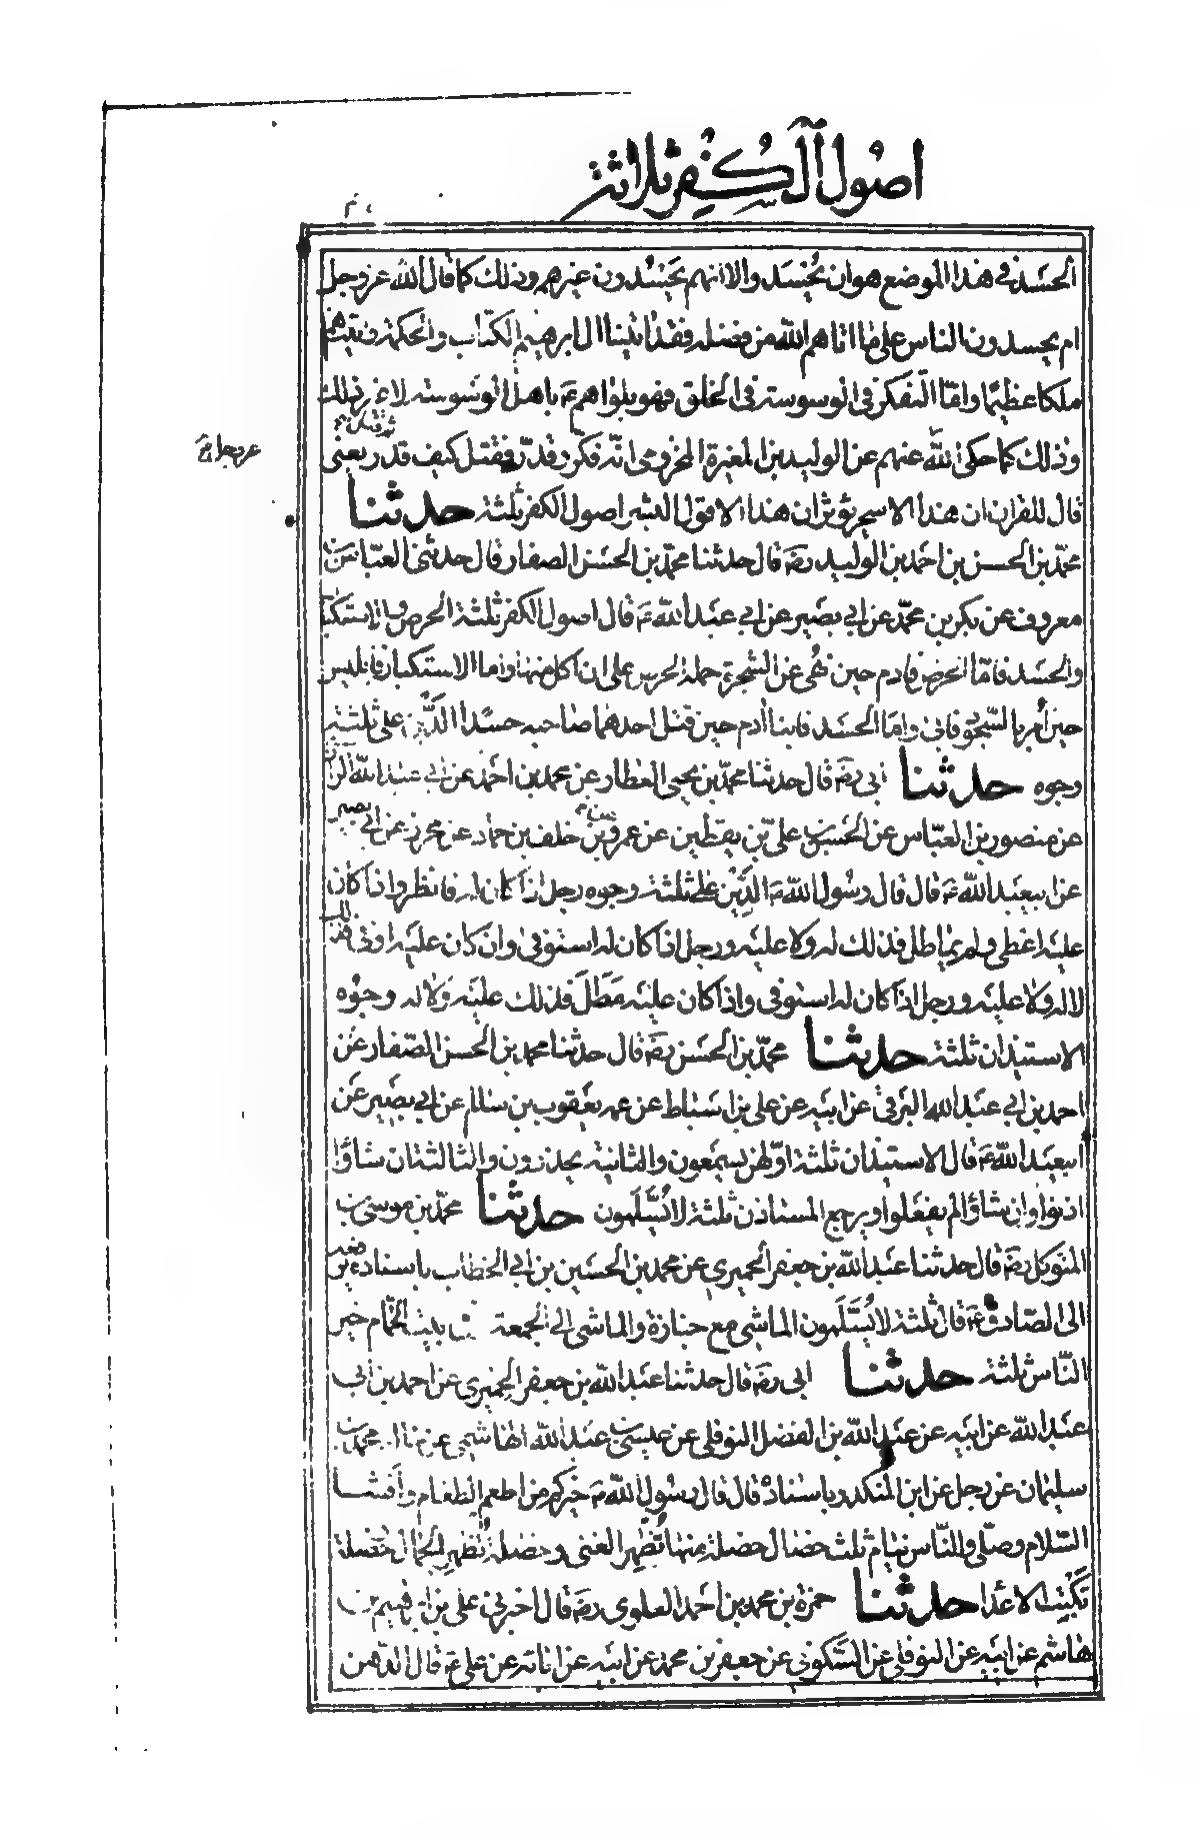 اصول الكفر ثلاثة
الحسد في هذا الموضع هو ان يُحْسَد والا انهم يَحْسُدون غيرهم وذلك كما قال الله عز وجل
ام يحسدون الناس على ما اتاهم الله من فضله فقد اتينا ال ابرهيم الكتاب والحكمة واتيناهم
ملكا عظيما واما التفكر في الوسوسة في الخلق فهو بلواهم ع باهل الوسوسة لا غير ذلك
وذلك كما حكى الله عنهم عن الوليد بن المغيرة المخزومي انه فكر وقدر فقتل كيف قدر يعني
ثم قتل كيف قدر
قال للقران ان هذا الا سحر يؤثر ان هذا الا قول البشر اصول الكفر ثلثة حدثنا
محمد بن الحسن بن احمد بن الوليد رضه قال حدثنا محمد بن الحسن الصفار قال حدثني العباس بن
معروف عن بكر بن محمد عن ابي بصير عن ابي عبد الله ع قال اصول الكفر ثلثة الحرص والاستكبار
والحسد فاما الحرص فادم حين نُهي عن الشجرة حمله الحرص على ان اكل منها واما الاستكبار فابليس
حين أمر بالسجود فابى واما الحسد فابنا أدم حين قتل احدهما صاحبه حسدا الدَّين على ثلثة
وجوه حدثنا ابي رضه قال حدثنا محمد بن يحيى العطار عن محمد بن احمد عن ابي عبد الله الرازي
عن منصور بن العباس عن الحسن بن علي بن يقطين عن عمرو بن خلف بن حماد عن محرز عن ابي بصير
عن ابيعبد الله ع قال قال رسول الله ص الدَّين على ثلثة وجوه رجل اذا كان له فانظر واذا كان
عليه اعطى ولم يماطل فذلك له ولا عليه ورجل اذا كان له استوفى وان كان عليه اوفى فذلك
لا له ولا عليه ورجل اذا كان له استوفى واذا كان عليه مَطَلَ فذلك عليه ولا له وجوه
الاستيذان ثلثة حدثنا محمد بن الحسن رضه قال حدثنا محمد بن الحسن الصفار عن
احمد بن ابي عبد الله البرقي عن ابيه عن علي بن اسباط عن عمه يعقوب بن سالم عن ابي بصير عن
ابيعبد الله ع قال الاستيذان ثلثة اولهن يسمعون والثانية يحذرون والثالثة ان شاؤا
اذنوا وان شاؤا لم يفعلوا ويرجع المستاذن ثلثة لا يُسَلَّمون حدثنا محمد بن موسى بن
المتوكل رضه قال حدثنا عبد الله بن جعفر الحميري عن محمد بن الحسين بن ابي الخطاب باسناده
الى الصادق ع قال ثلثة لا يُسَلَّمون الماشي مع جنازة والماشي الى الجمعة بيت الحمام خير
الناس ثلثة حدثنا ابي رضه قال حدثنا عبد الله بن جعفر الحميري عن احمد بن ابي
عبد الله عن ابيه عن عبد الله بن الفضل النوفلي عن عيسى بن عبد الله الهاشمي عن محمد بن
سليمان عن رجل عن ابن المنكدر باسناده قال قال رسول الله ص خيركم من اطعم الطعام وافشا
السلام وصلى والناس نيام ثلث خصال خصلة منها تُظهر الغنى وخصلة تُظهر الجمال وخصلة
تكبت الاعدا حدثنا حمزة بن محمد بن احمد العلوي رضه قال اخبرني علي بن ابرهيم بن
هاشم عن ابيه عن النوفلي عن السكوني عن جعفر بن محمد عن ابيه عن ابائه عن علي ع قال الدهن